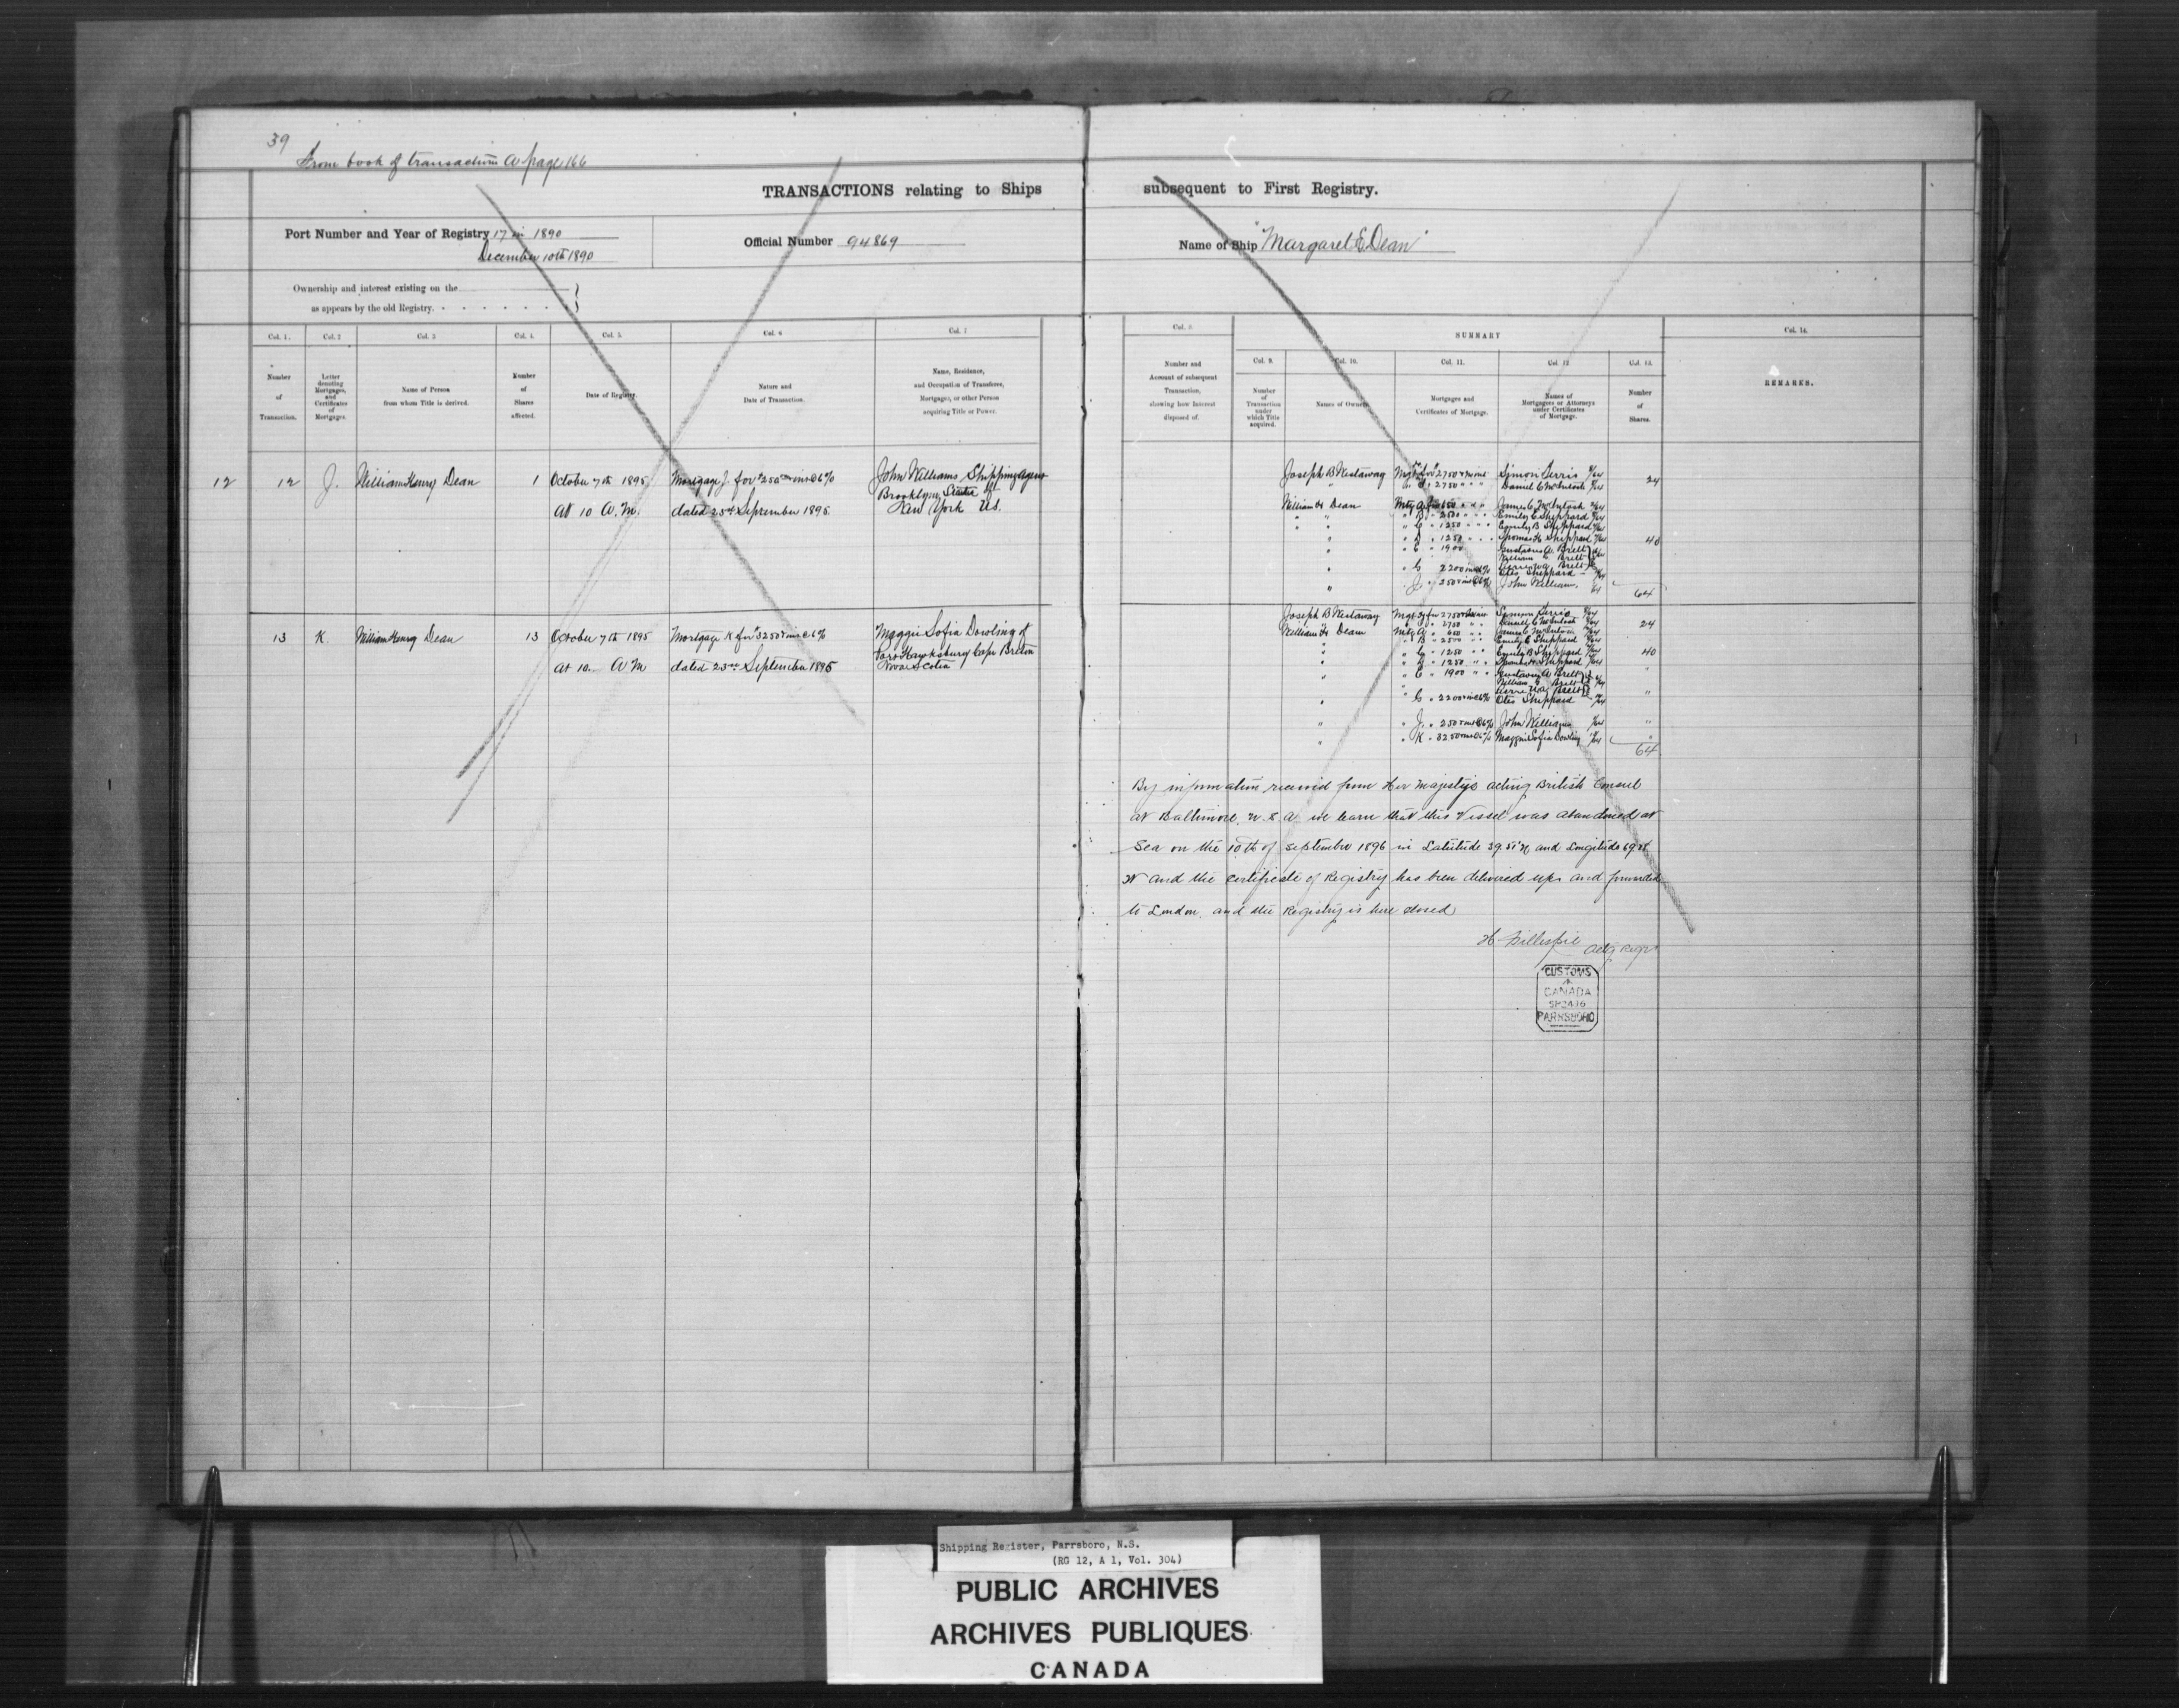 39
From book of transactions A page 166
TRANSACTIONS relating to Ships
Port Number and Year of Registry 17 in 1890
December 10th 1890
Official Number 94869
Ownership and interest existing on the
as appears by the old Registry.
Col. 1. Col. 2 Col. 3 Col. 4. Col. 5. Col. 6 Col. 7
Number of Transaction.
Letter denoting Mortgages, and Certificates of Mortgages.
Name of Person from whom Title is derived.
Number of Shares affected.
Date of Registry.
Nature and Date of Transaction.
Name, Residence, and Occupation of Transferee, Mortgagee, or other Person acquiring Title or Power.
12 12 J. William Henry Dean 1 October 7th 1895 Mortgage J. for $250 int @ 6% John Williams Shipping Agent
Brooklyn, State of
At 10 A.M. dated 23rd September 1895 New York US.
13 K. William Henry Dean 13 October 7th 1895 Mortgage K for $3250 & int @ 6% Maggie Sofia Dowling of
Port Hawksbury Cape Breton
At 10 A M dated 23rd September 1895 Nova Scotia
subsequent to First Registry.
Name of Ship "Margaret E. Dean"
Col. 8
Number and Account of subsequent Transaction, showing how Interest disposed of.
SUMMARY
Col. 9. Col. 10. Col. 11. Col. 12 Col. 13. Col. 14.
Number of Transaction under which Title acquired.
Names of Owners
Mortgages and Certificates of Mortgage.
Names of Mortgagees or Attorneys under Certificates of Mortgage.
Number of Shares.
REMARKS.
Joseph B Westaway 2750 Simon Ferris
" 2750 " " Daniel C McIntosh 24
William H Dean Mtg A James C McIntosh
" " " B " 2500 " " Emily C Sheppard
" " " C " 1250 " " Emily B Sheppard
" " D " 1250 " " Thomas H Sheppard 40
" " E " 1900 Gustavus A. Brett
William Brett
Brett
" " G 2200 Otis Sheppard
" " J. " 250 & int @ 6% John William
64
Joseph B Westaway 2750 Simon Ferris
" 2750 " " Daniel C McIntosh 24
William H Dean Mtg A " 650 " " James C McIntosh
" B " 2500 " " Emily C Sheppard
" " C " 1250 " " Emily B Sheppard 40
" " D " 1250 " " Thomas H Sheppard
" " E " 1900 " " Gustavus A Brett "
William Brett
Brett
" " G " 2200 & int @ 6% Otis Sheppard "
" " J. " 250 & int @ 6% John William "
" " K " 3250 & int @ 6% Maggie Sofia Dowling "
64
By information received from Her Majestys acting British Consul
at Baltimore, U.S.A. we learn that this Vessel was abandoned at
Sea on the 10th of September 1896 in Latitude 39.51' N and Longitude
W and the certificate of Registry has been delivered up and forwarded
to London, and the Registry is here closed
H Gillespie Actg Regr
CUSTOMS
CANADA
SP 24 96
PARRSBORO
Shipping Register, Parrsboro, N.S.
(RG 12, A 1, Vol. 304)
PUBLIC ARCHIVES
ARCHIVES PUBLIQUES
CANADA